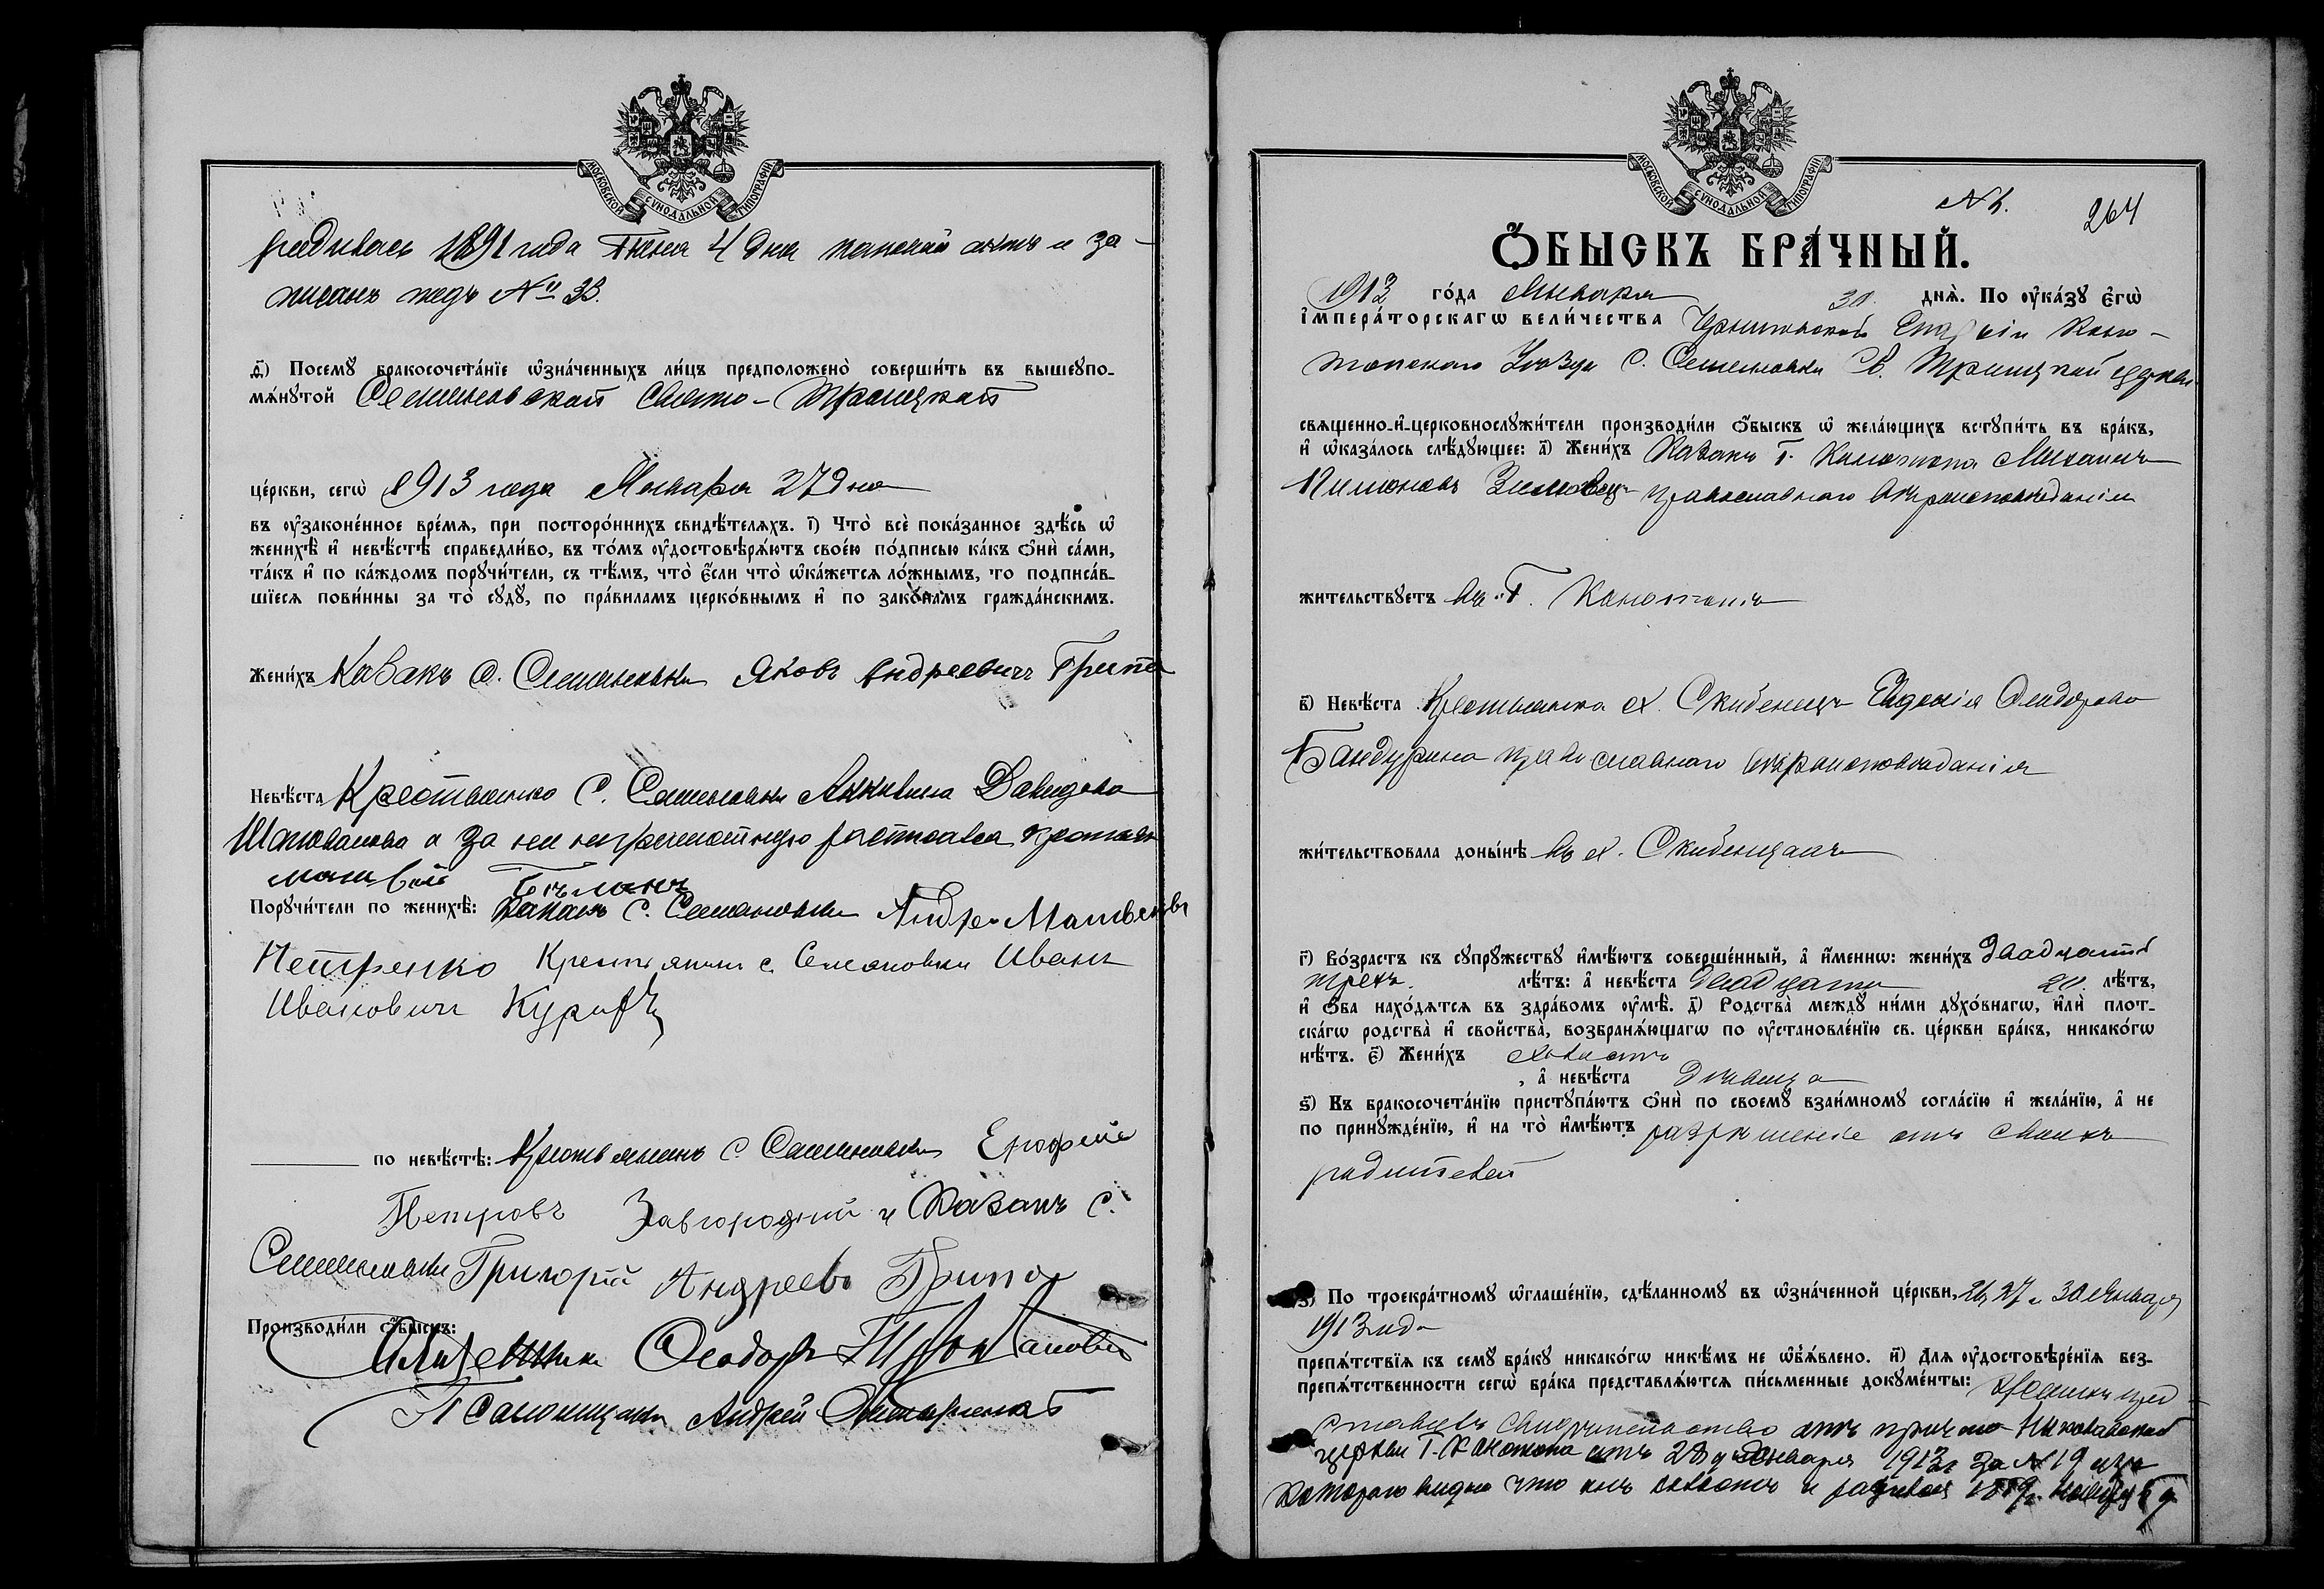 МОСКОВСКОЙ СѴНОДАЛЬНОЙ ТИПОГРАФІИ
родилась 1891 года Июня 4 дня каковой актъ и за-
писанъ подъ № 33.
д҃) Посемꙋ бракосочета́нїе ѡ҆зна́ченныхъ ли́цъ предположено̀ соверши́ть въ вышеꙋпо-
мѧ́нꙋтой Семеновской Свято-Троицкой
це́ркви, сегѡ̀ 1913 года Января 27 дня
въ оу҆законе́нное вре́мѧ, при посторо́ннихъ свидѣ́телѧхъ. і҃) Что̀ всѐ пока́занное здѣ́сь ѡ҆
женихѣ̀ и҆ невѣ́стѣ справедли́во, въ то́мъ оу҆достовѣрѧ́ютъ свое́ю по́дписью ка́къ ѻ҆нѝ са́ми,
та́къ и҆ по ка́ждомъ порꙋчи́тели, съ тѣ́мъ, что̀ є҆́сли что̀ ѡ҆ка́жетсѧ ло́жнымъ, то подписа́в-
шїесѧ пови́нны за то̀ сꙋдꙋ̀, по пра́виламъ церко́внымъ и҆ по зако́намъ гражда́нскимъ.
Жени́хъ Казакъ с. Семеновки Яковъ Андреевичъ Грипа
Невѣ́ста Крестьянка С. Семеновки Давидова
а за нее неграмотную
Матвей
Порꙋчи́тели по женихѣ̀: Казакъ С. Семеновки Андрей Матвеевъ
Петренко Крестьянин с. Семеновки Иванъ
Ивановичъ
по невѣ́стѣ: Крестьянинъ С. Семеновки Ерофей
Петровъ Завгородний и Казакъ С.
Семеновки Григорій Андреевъ Грипа
Производи́ли ѻ҆́быскъ:
Священникъ Ѳеодоръ
Псаломщикъ Андрей
МОСКОВСКОЙ СѴНОДАЛЬНОЙ ТИПОГРАФІИ
264
ѺБЫСКЪ БРА́ЧНЫЙ.
1913 го́да Января 30 днѧ̀. По оу҆ка́зꙋ є҆гѡ̀
і҆мпера́торскагѡ вели́чества Черниговской Епархіи Коно-
топскаго Уѣзда С. Семеновки Св. Троицкой церкви
свѧщенно-и҆-церковнослꙋжи́тели производи́ли ѻ҆́быскъ ѡ҆ жела́ющихъ встꙋпи́ть въ бра́къ,
и҆ ѡ҆каза́лось слѣ́дꙋющее: а҃) Жени́хъ Казакъ г. Конотопа Михаилъ
Пименовъ православнаго вѣроисповѣданія
жи́тельствꙋетъ въ г. Конотопѣ
в҃) Невѣ́ста Крестьянка х. Скибенецъ Евдокія
Бандурина православнаго вѣроисповѣданія
жи́тельствовала доны́нѣ въ х. Скибенцахъ
г҃) Во́зрастъ къ сꙋпрꙋ́жествꙋ и҆мѣ́ютъ соверше́нный, а҆ и҆́меннѡ: жени́хъ двадцати
трехъ. лѣ́тъ: а҆ невѣ́ста двадцати 20. лѣ́тъ,
и҆ ѻ҆́ба нахо́дѧтсѧ въ здра́вомъ оу҆мѣ̀. д҃) Родства̀ междꙋ̀ ни́ми дꙋхо́внагѡ, и҆лѝ плот-
ска́гѡ родства̀ и҆ свойства̀, возбранѧ́ющагѡ по оу҆становле́нїю св. це́ркви бра́къ, никако́гѡ
нѣ́тъ. є҃) Жени́хъ холостъ
, а҆ невѣ́ста дѣвица
ѕ҃) Къ бракосочета́нїю пристꙋпа́ютъ ѻ҆нѝ по своемꙋ̀ взаи́мномꙋ согла́сїю и҆ жела́нїю, а҆ не
по принꙋжде́нїю, и҆ на то̀ и҆мѣ́ютъ разрѣшеніе отъ своихъ
родителей
з҃) По троекра́тномꙋ ѡ҆глаше́нїю, сдѣ́ланномꙋ въ ѡ҆зна́ченной це́ркви, 26, 27 и 30 Января
1913 года
препѧ́тствїѧ къ семꙋ̀ бра́кꙋ никако́гѡ никѣ́мъ не ѡ҆б̾ѧ́влено. и҃) Для оу҆достовѣре́нїѧ без-
препѧ́тственности сегѡ̀ бра́ка представлѧ́ютсѧ пи́сьменные докꙋме́нты: Женихъ пред-
ставилъ свидѣтельство отъ причта Николаевской
церкви г. Конотопа отъ 28 Января 1913 г. за № 19 изъ
котораго видно что онъ холостъ и родился 1889 г.